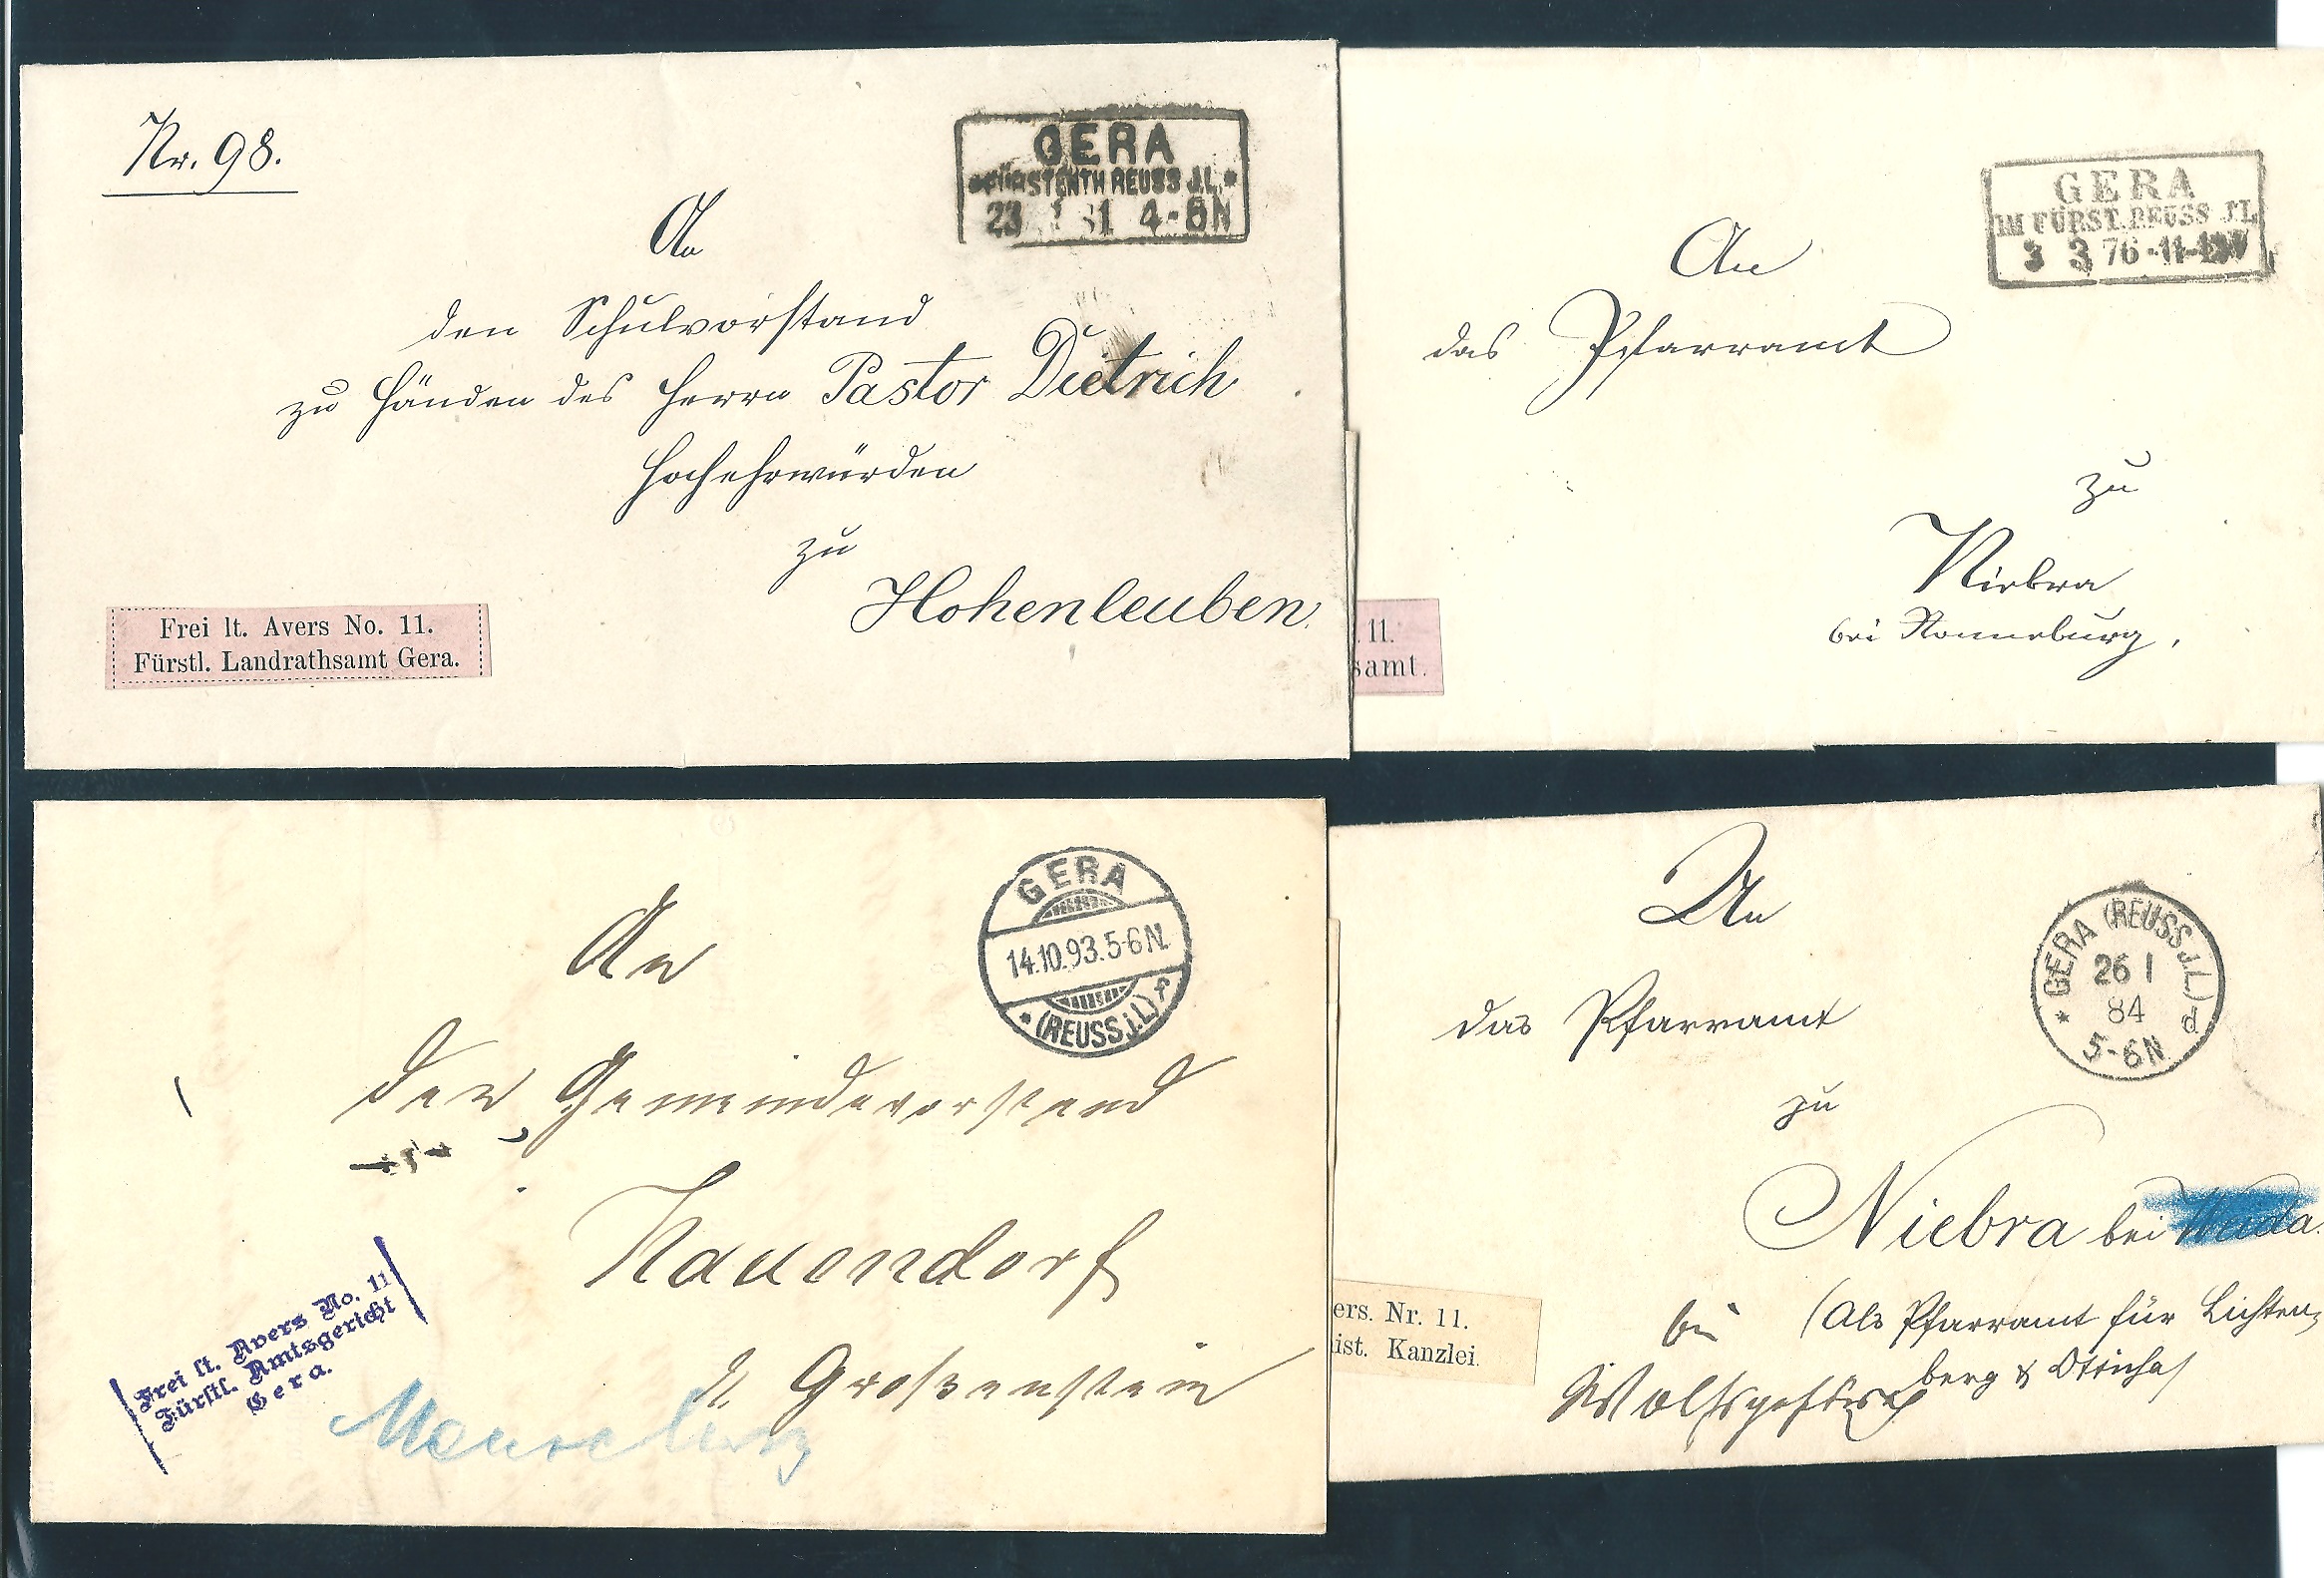 Nr. 98.
GERA
*FÜRSTENTH REUSS J.L.*
23 1 81 4-6N
An
den Schulvorstand
zu Händen des Herrn Pastor Dietrich
Hochehrwürden
zu
Hohenleuben.
Frei lt. Avers No. 11.
Fürstl. Landrathsamt Gera.
GERA
IM FÜRST. REUSS J.L.
3 3 76 -11-12
An
das Pfarramt
zu
Niebra
bei Ronneburg.
11.
samt.
GERA
14.10.93.5-6N.
* (REUSS j.L.) f
An
den Gemeindevorstand
Kauendorf
Großenstein
Frei lt. Avers No. 11
Fürstl. Amtsgericht
Gera.
Meuselwitz
GERA (REUSS J.L.)
26 1
84
5-6N
* d
An
das Pfarramt
zu
Niebra bei Weida.
bei (Als Pfarramt für Lichten-
berg & Otticha)
Wolfsgefärth
ers. Nr. 11.
ist. Kanzlei.